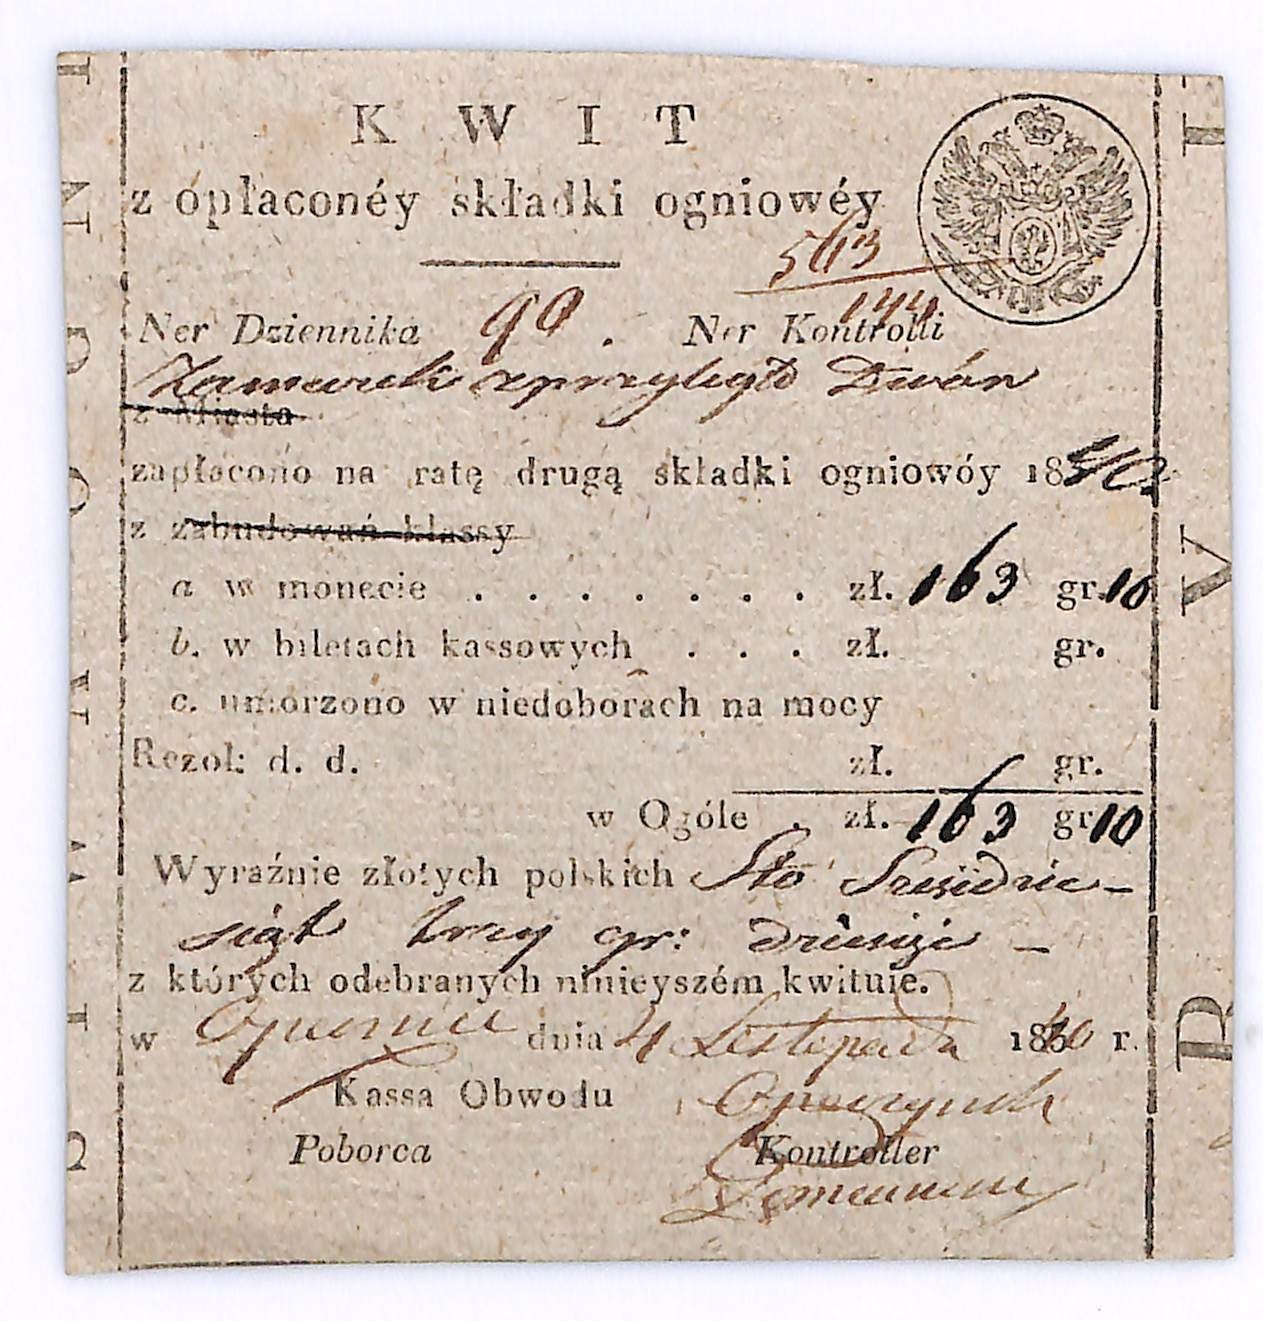 K W I T
z opłaconéy składki ogniowéy
563
144
Ner Dziennika 90. Ner Kontrolli
Dwór
z Miasta
zapłacono na ratę drugą składki ogniowóy 1840
z zabudowań klassy
a w monecie . . . . . . . zł. 163 gr. 10
b. w biletach kassowych . . . zł. gr.
c. umorzono w niedoborach na mocy
Rezol: d. d. zł. gr.
w Ogóle . zł. 163 gr 10
Wyraźnie złotych polskich Sto Sześćdzie-
siąt trzy gr: dziesięć -
z których odebranych ninieyszém kwituie.
w Opocznie dnia 4 Listopada 1840 r.
Kassa Obwodu Opoczyńsk
Poborca Kontroller